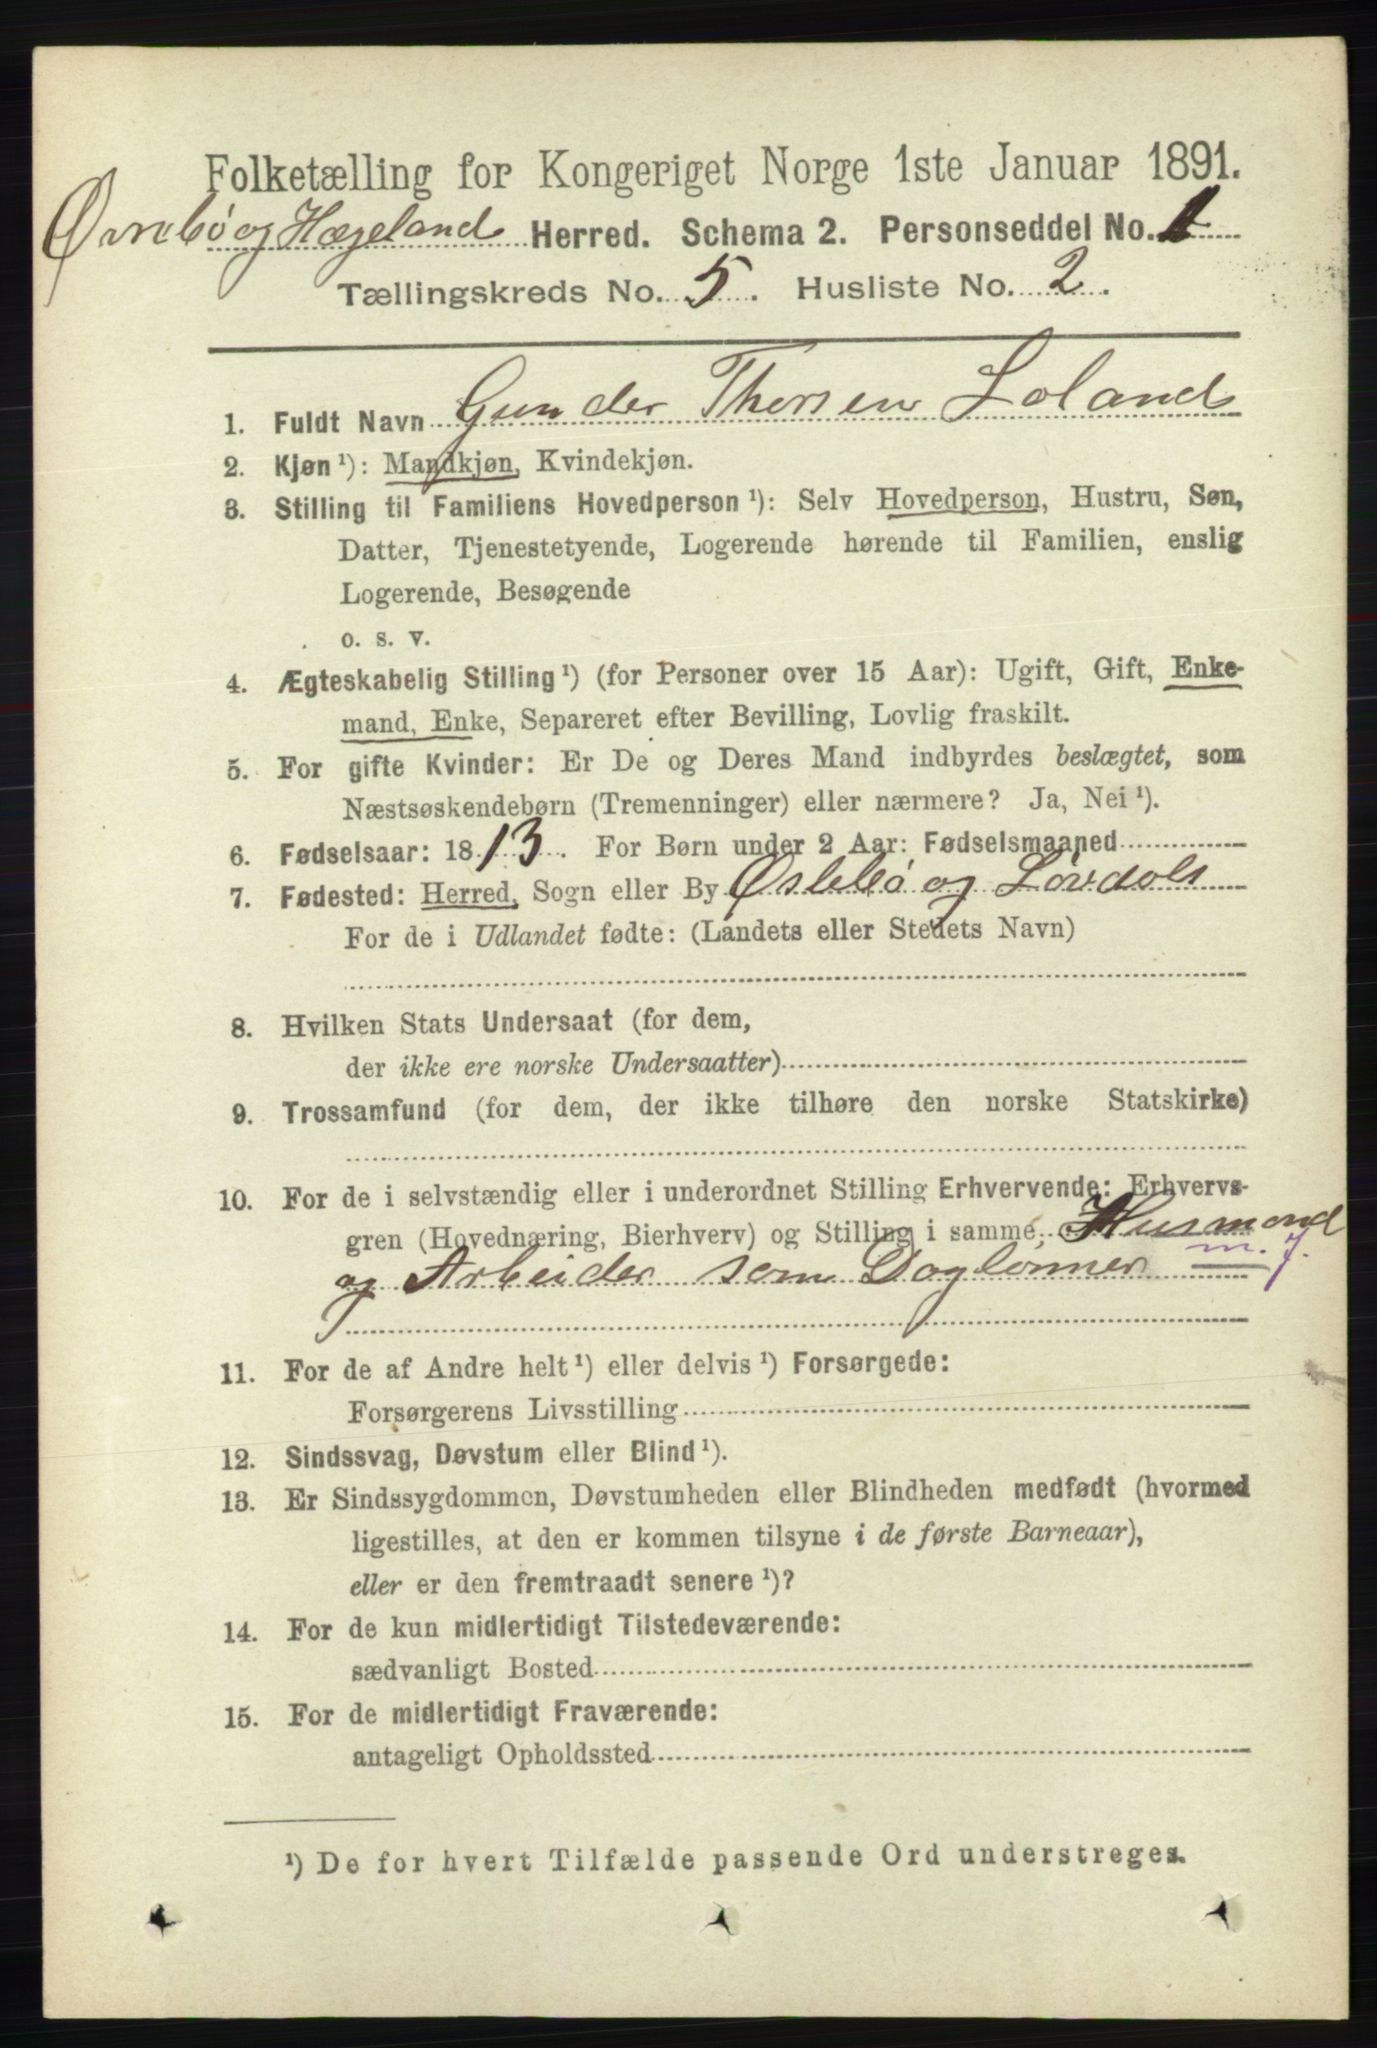 Folketælling for Kongeriget Norge 1ste Januar 1891.
Øvrebö og Hægeland Herred. Schema 2. Personseddel No. 1
Tællingskreds No. 5. Husliste No. 2.
1. Fuldt Navn Gunder Thorsen Loland
2. Kjøn ¹): Mandkjøn, Kvindekjøn.
3. Stilling til Familiens Hovedperson ¹): Selv Hovedperson, Hustru, Søn,
Datter, Tjenestetyende, Logerende hørende til Familien, enslig
Logerende, Besøgende
o. s. v.
4. Ægteskabelig Stilling ¹) (for Personer over 15 Aar): Ugift, Gift, Enke-
mand, Enke, Separeret efter Bevilling, Lovlig fraskilt.
5. For gifte Kvinder: Er De og Deres Mand indbyrdes beslægtet, som
Næstsøskendebørn (Tremenninger) eller nærmere? Ja, Nei ¹).
6. Fødselsaar: 1813. For Børn under 2 Aar: Fødselsmaaned
7. Fødested: Herred, Sogn eller By Øslebö og Lövdols
For de i Udlandet fødte: (Landets eller Stedets Navn)
8. Hvilken Stats Undersaat (for dem,
der ikke ere norske Undersaatter)
9. Trossamfund (for dem, der ikke tilhøre den norske Statskirke)
10. For de i selvstændig eller i underordnet Stilling Erhvervende: Erhvervs-
gren (Hovednæring, Bierhverv) og Stilling i samme, Husmand
og Arbeider som Daglønner m. j.
11. For de af Andre helt ¹) eller delvis ¹) Forsørgede:
Forsørgerens Livsstilling
12. Sindssvag, Døvstum eller Blind ¹).
13. Er Sindssygdommen, Døvstumheden eller Blindheden medfødt (hvormed
ligestilles, at den er kommen tilsyne i de første Barneaar),
eller er den fremtraadt senere ¹)?
14. For de kun midlertidigt Tilstedeværende:
sædvanligt Bosted
15. For de midlertidigt Fraværende:
antageligt Opholdssted
¹) De for hvert Tilfælde passende Ord understreges.